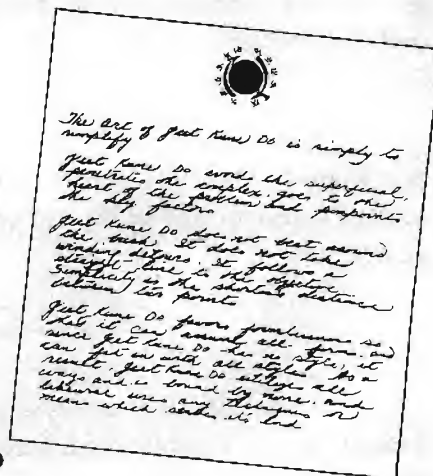 The art of Jeet Kune Do is simply to
simplify
Jeet Kune Do avoids the superficial,
penetrates the complex, goes to the
heart of the problem and pinpoints
the key factors
Jeet Kune Do does not beat around
the bush. It does not take
winding detours. It follows a
straight line to the objective.
Simplicity is the shortest distance
between two points
Jeet Kune Do favors formlessness so
that it can assume all forms and
since Jeet Kune Do has no style, it
can fit in with all styles. As a
result, Jeet Kune Do utilizes all
ways and is bound by none and
likewise uses any techniques or
means which serves its end